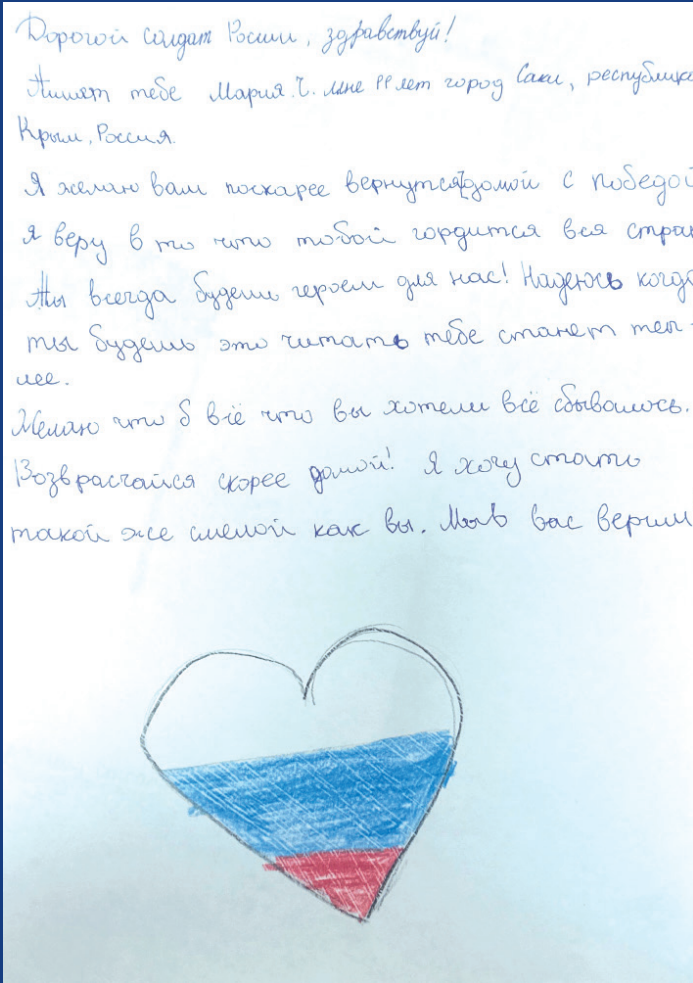 Дорогой солдат Росии, здравствуй!
Пишет тебе Мария.Ч. мне 11 лет город Саки, республика
Крым, Россия.
Я желаю вам поскарее вернутся домой с победой
я веру в то что тобой гордится вся стран
Ты всегда будешь героем для нас! Надеюсь когда
ты будешь это читать тебе станет теп-
лее.
Желаю что б всё что вы хотели всё сбывалось.
Возврасчайся скорее домой! Я хочу стать
такой же смелой как вы. Мы в вас верим